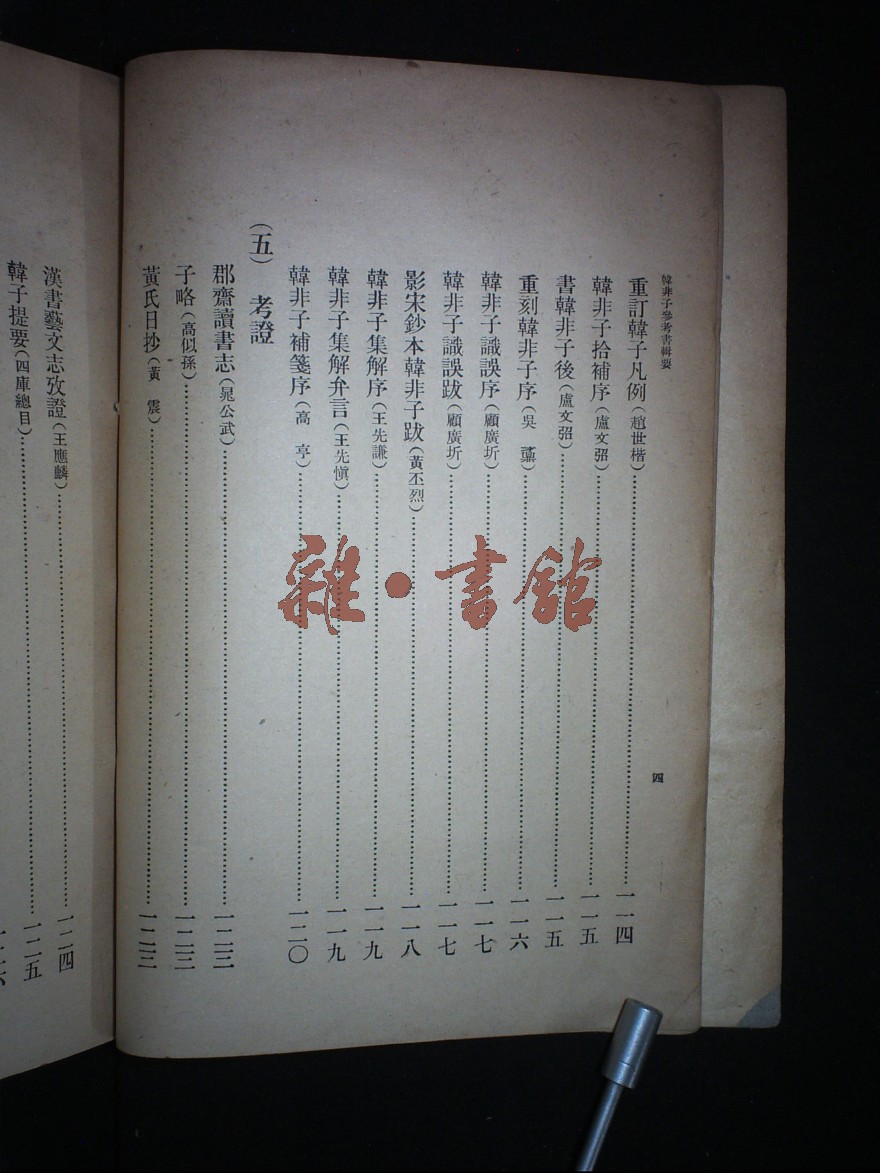 韓非子參考書輯要
四
重訂韓子凡例(趙世楷)一一四
韓非子拾補序(盧文弨)一一五
書韓非子後(盧文弨)一一五
重刻韓非子序(吳鼒)一一六
韓非子識誤序(顧廣圻)一一七
韓非子識誤跋(顧廣圻)一一七
影宋鈔本韓非子跋(黃丕烈)一一八
韓非子集解序(王先謙)一一九
韓非子集解弁言(王先慎)一一九
韓非子補箋序(高亨)一二〇
(五)考證
郡齋讀書志(晁公武)一二三
子略(高似孫)一二三
黃氏日抄(黃震)一二三
漢書藝文志攷證(王應麟)一二四
韓子提要(四庫總目)一二五
雜·書館